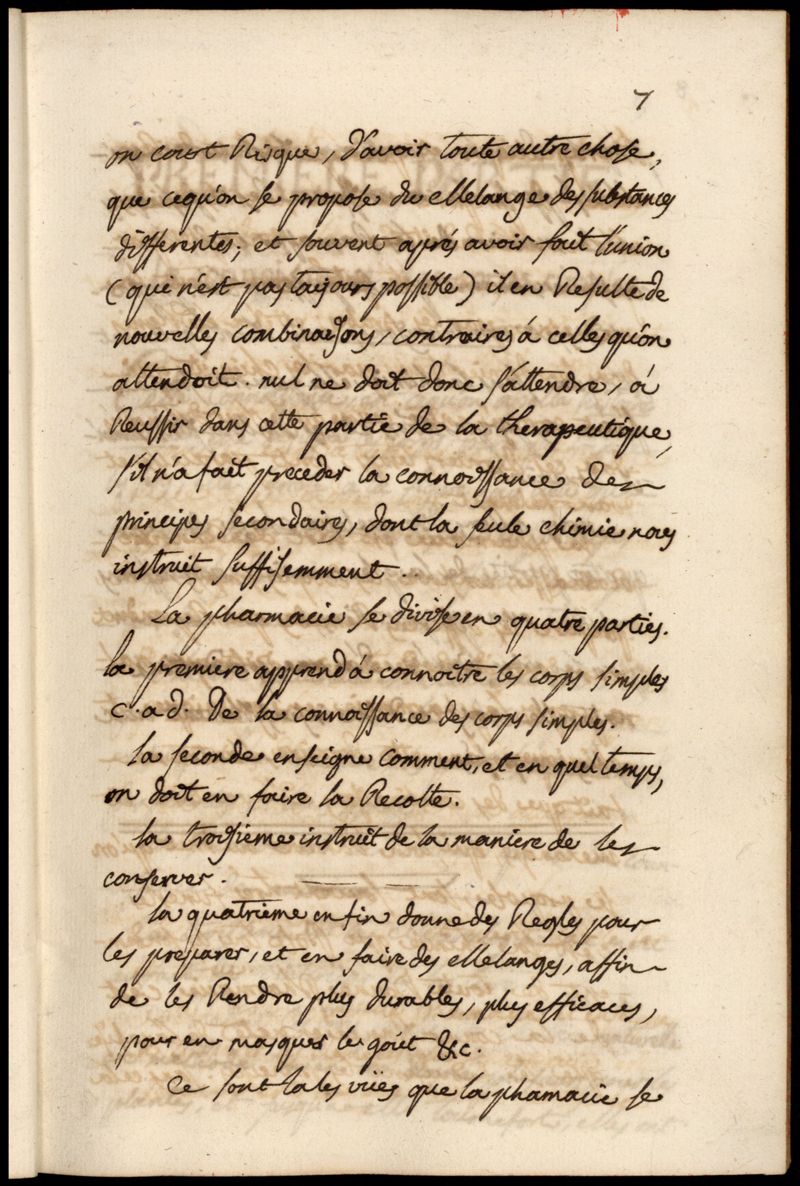 7
on court Risque, d'avoir toute autre chose,
que cequ'on se propose du Mélange des substances
differentes; et souvent aprés avoir fait l'union
(qui n'est pas toujours possible) il en Resulte de
nouvelles combinaisons, contraires á celles qu'on
attendoit. nul ne doit donc s'attendre, á
Reussir dans cette partie de la therapeutique,
s'il n'a fait preceder la connoissance des
principes secondaires, dont la seule chimie nous
instruit suffisemment.
La pharmacie se divise en quatre parties.
la premiere apprend á connoitre les corps simples
c.a d. De la connoissance des corps simples.
la seconde enseigne comment, et en quel temps,
on doit en faire la Recolte.
la troisieme instruit de la maniere de les
conserver.
la quatrieme enfin donne des Regles pour
les preparer, et en faire des Mélanges, affin
de les Rendre plus durables, plus efficaces,
pour en masquer le goût &c.
Ce sont la les vües que la phamacie se